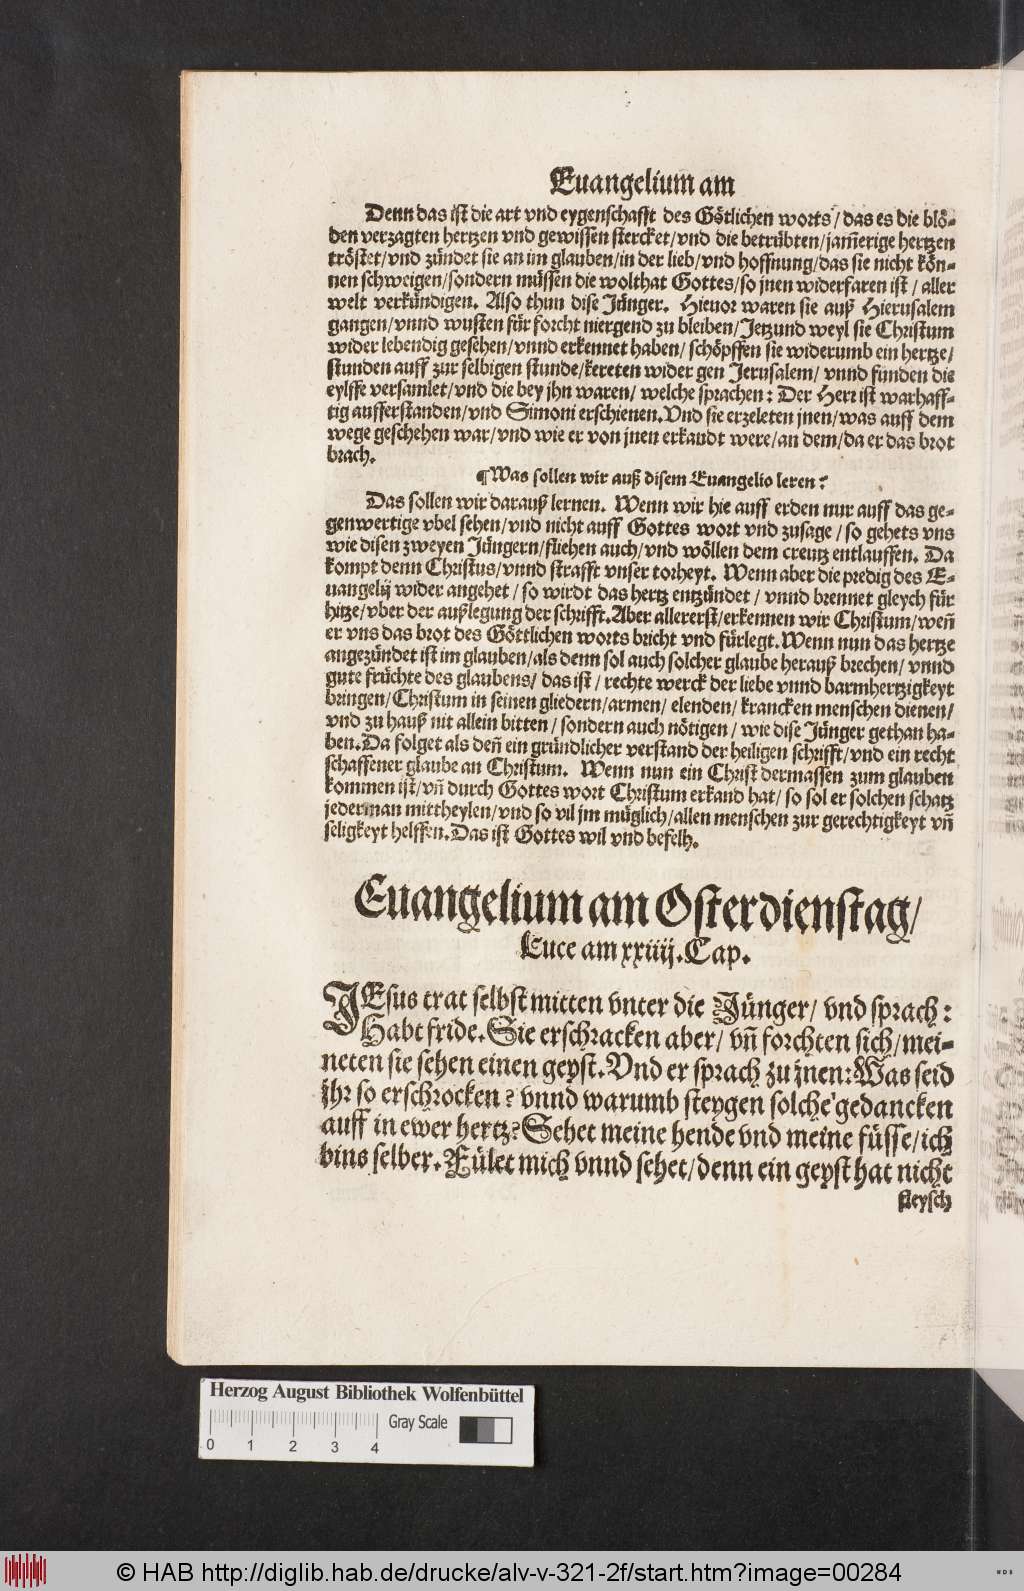 Euangelium am
Denn das ist die art vnd eygenschafft des Götlichen worts / das es die blö-
den verzagten hertzen vnd gewissen stercket/vnd die betrübten/jam̄erige hertzen
tröstet/vnd zündet sie an im glauben/in der lieb/vnd hoffnung/das sie nicht kön-
nen schweigen/sondern müssen die wolthat Gottes/so jnen widerfaren ist / aller
welt verkündigen. Also thun dise Jünger. Hieuor waren sie auß Hierusalem
gangen/vnnd wusten für forcht niergend zu bleiben/Jetzund weyl sie Christum
wider lebendig gesehen/vnnd erkennet haben/ schöpffen sie widerumb ein hertze/
stunden auff zur selbigen stunde/kereten wider gen Jerusalem/ vnnd funden die
eylffe versamlet/vnd die bey jhn waren/ welche sprachen: Der Herr ist warhaff-
tig aufferstanden/vnd Simoni erschienen.Vnd sie erzeleten jnen/was auff dem
wege geschehen war/vnd wie er von jnen erkandt were/an dem/da er das brot
brach.
¶Was sollen wir auß disem Euangelio leren?
Das sollen wir darauß lernen. Wenn wir hie auff erden nur auff das ge-
genwertige vbel sehen/vnd nicht auff Gottes wort vnd zusage / so gehets vns
wie disen zweyen Jüngern/fliehen auch/vnd wöllen dem creutz entlauffen. Da
kompt denn Christus/vnnd strafft vnser torheyt. Wenn aber die predig des E-
uangelij wider angehet / so wirdt das hertz entzündet / vnnd brennet gleych für
hitze/vber der außlegung der schrifft.Aber allererst/erkennen wir Christum/weñ
er vns das brot des Göttlichen worts bricht vnd fürlegt.Wenn nun das hertze
angezündet ist im glauben/als denn sol auch solcher glaube herauß brechen/ vnnd
gute früchte des glaubens/ das ist / rechte werck der liebe vnnd barmhertzigkeyt
bringen/Christum in seinen gliedern/armen/ elenden/ krancken menschen dienen/
vnd zu hauß nit allein bitten / sondern auch nötigen / wie dise Jünger gethan ha-
ben.Da folget als deñ ein gründlicher verstand der heiligen schrifft/vnd ein recht
schaffener glaube an Christum. Wenn nun ein Christ dermassen zum glauben
kommen ist/vñ durch Gottes wort Christum erkand hat/ so sol er solchen schatz
jederman mittheylen/vnd so vil jm müglich/allen menschen zur gerechtigkeyt vñ
seligkeyt helffen.Das ist Gottes wil vnd befelh.
Euangelium am Osterdienstag/
Luce am xxiiij.Cap.
JEsus trat selbst mitten vnter die Jünger/ vnd sprach:
Habt fride.Sie erschracken aber/ vñ forchten sich/mei-
neten sie sehen einen geyst.Vnd er sprach zu jnen:Was seid
jhr so erschrocken? vnnd warumb steygen solche gedancken
auff in ewer hertz?Sehet meine hende vnd meine füsse/ich
bins selber.Fület mich vnnd sehet/denn ein geyst hat nicht
fleysch
Herzog August Bibliothek Wolfenbüttel
0 1 2 3 4 Gray Scale
© HAB http://diglib.hab.de/drucke/alv-v-321-2f/start.htm?image=00284